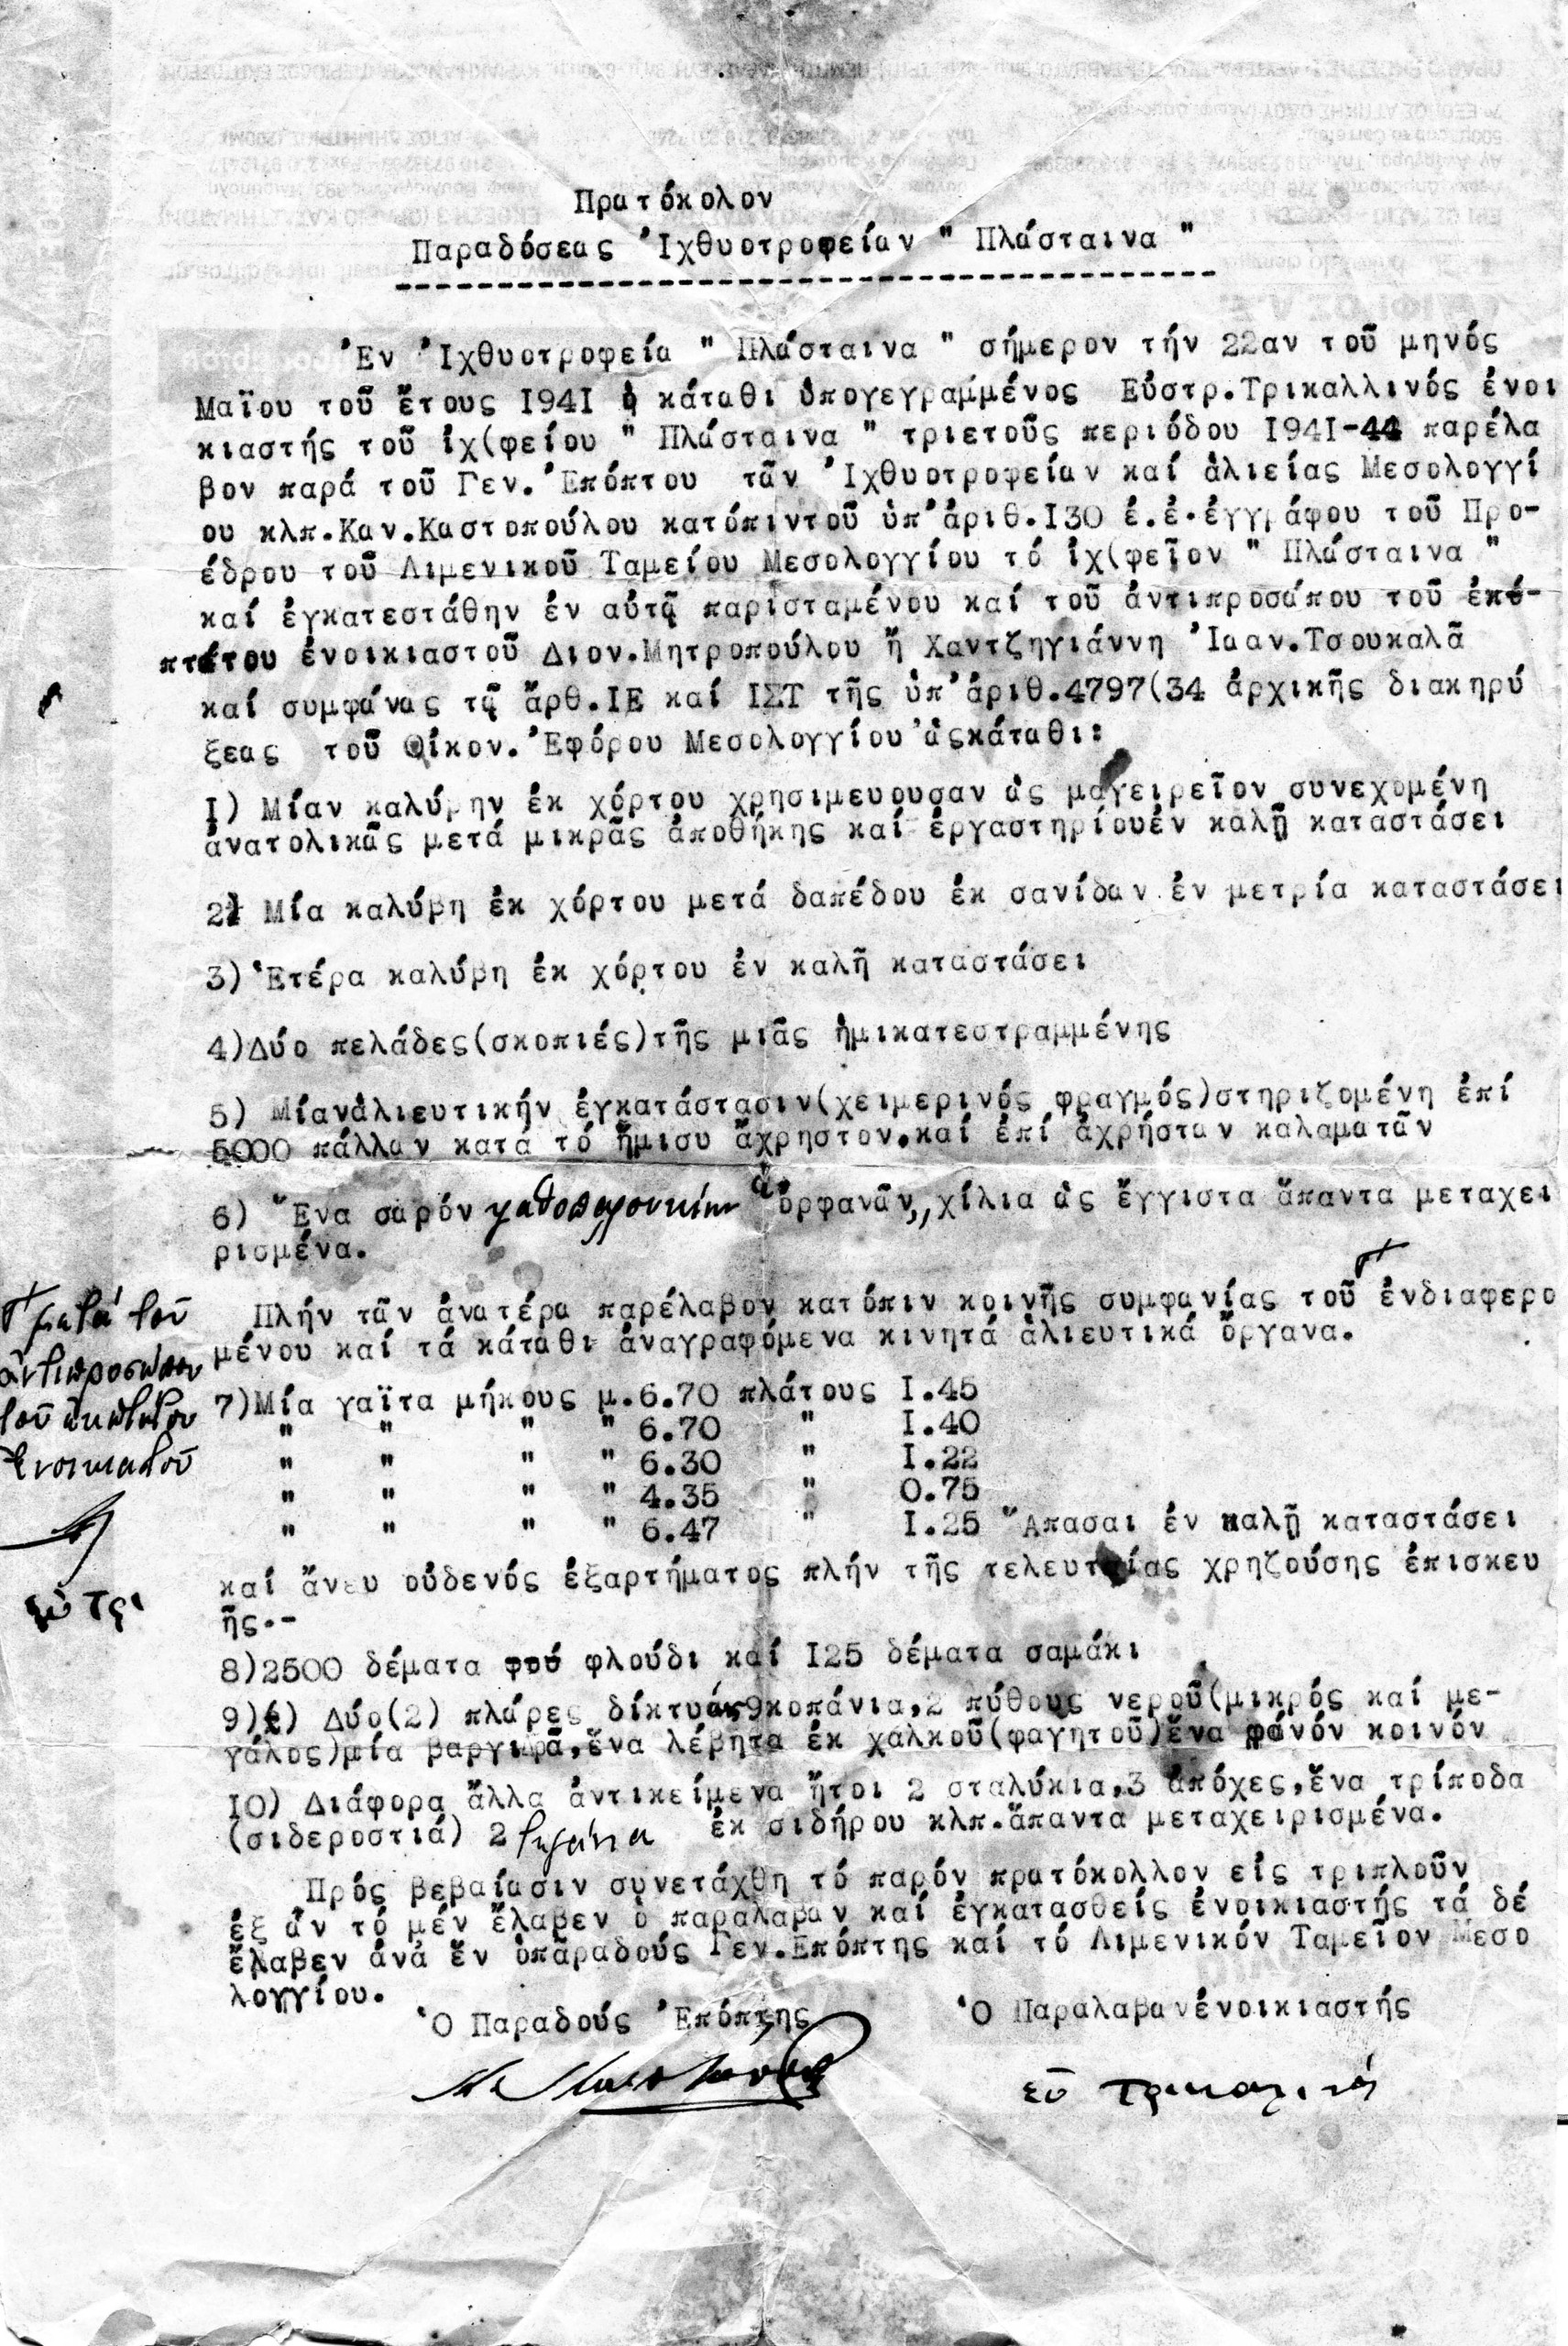 Πρωτόκολον
Παραδόσεως Ἰχθυοτροφείων " Πλώσταινα "
Ἐν Ἰχθυοτροφείω " Πλώσταινα " σήμερον τήν 22αν τοῦ μηνός
Μαϊου τοῦ ἔτους 1941 ὁ κάτωθι ὑπογεγραμμένος Εὐστρ.Τρικαλλινός ἐνοι
κιαστής τοῦ ἰχ(φείου " Πλώσταινα " τριετοῦς περιόδου 1941-44 παρέλα
βον παρά τοῦ Γεν.Ἐπόπτου τῶν Ἰχθυοτροφείων καί ἁλιείας Μεσολογγί
ου κλπ.Κων.Κωστοπούλου κατόπιντοῦ ὑπ'ἀριθ.130 ἐ.ἐ.ἐγγράφου τοῦ Προ-
έδρου τοῦ Λιμενικοῦ Ταμείου Μεσολογγίου τό ἰχ(φεῖον " Πλώσταινα "
καί ἐγκατεστάθην ἐν αὐτῷ παρισταμένου καί τοῦ ἀντιπροσώπου τοῦ ἐκπ-
πτώτου ἐνοικιαστοῦ Διον.Μητροπούλου ἤ Χαντζηγιάννη Ἰωαν.Τσουκαλᾶ
καί συμφώνως τῷ ἄρθ.ΙΕ καί ΙΣΤ τῆς ὑπ'ἀριθ.4797(34 ἀρχικῆς διακηρύ
ξεως τοῦ Οἰκον.Ἐφόρου Μεσολογγίου ὡςκάτωθι:
1) Μίαν καλύβην ἐκ χόρτου χρησιμευουσαν ὡς μαγειρεῖον συνεχομένη
ἀνατολικῶς μετά μικρᾶς ἀποθήκης καί ἐργαστηρίουἐν καλῇ καταστάσει
2) Μία καλύβη ἐκ χόρτου μετά δαπέδου ἐκ σανίδων ἐν μετρία καταστάσει
3) Ἑτέρα καλύβη ἐκ χόρτου ἐν καλῆ καταστάσει
4)Δύο πελάδες(σκοπιές)τῆς μιᾶς ἡμικατεστραμμένης
5) Μίανἁλιευτικήν ἐγκατάστασιν(χειμερινός φραγμός)στηριζομένη ἐπί
5000 πάλλων κατά τό ἥμισυ ἄχρηστον.καί ἐπί ἀχρήστων καλαμωτῶν
6) Ἕνα σωρόν ὀρφανῶν,,χίλια ὡς ἔγγιστα ἅπαντα μεταχει
ρισμένα.
Πλήν τῶν ἀνωτέρω παρέλαβον κατόπιν κοινῆς συμφωνίας τοῦ ἐνδιαφερο
μένου καί τά κάτωθι ἀναγραφόμενα κινητά ἁλιευτικά ὄργανα.
μετά τοῦ
ἀντιπροσώπου
τοῦ ἐκπτώτου
ἐνοικιαστοῦ
εὐ Τρι
7)Μία γαϊτα μήκους μ.6.70 πλάτους 1.45
" " " " 6.70 " 1.40
" " " " 6.30 " 1.22
" " " " 4.35 " 0.75
" " " " 6.47 " 1.25 Ἅπασαι ἐν καλῇ καταστάσει
καί ἄνευ οὐδενός ἐξαρτήματος πλήν τῆς τελευταίας χρηζούσης ἐπισκευ
ῆς.-
8)2500 δέματα φού φλούδι καί 125 δέματα σαμάκι
9) Δύο(2) πλώρες δίκτυά 9κοπάνια,2 πύθους νεροῦ(μικρός καί με-
γάλος)μία βαργιωρᾶ,ἕνα λέβητα ἐκ χαλκοῦ(φαγητοῦ)ἕνα φανόν κοινόν
10) Διάφορα ἄλλα ἀντικείμενα ἤτοι 2 σταλύκια,3 ἀπόχες,ἕνα τρίποδα
(σιδεροστιά) 2 τηγάνια ἐκ σιδήρου κλπ.ἅπαντα μεταχειρισμένα.
Πρός βεβαίωσιν συνετάχθη τό παρόν πρωτόκολλον εἰς τριπλοῦν
ἐξ ὧν τό μέν ἔλαβεν ὁ παραλαβων καί ἐγκατασθείς ἐνοικιαστής τά δέ
ἔλαβεν ἀνά ἕν ὁπαραδούς Γεν.Επόπτης καί τό Λιμενικόν Ταμεῖον Μεσο
λογγίου.
Ὁ Παραδούς Ἐπόπτης Ὁ Παραλαβωνἐνοικιαστής
εὐ Τρικαλινός